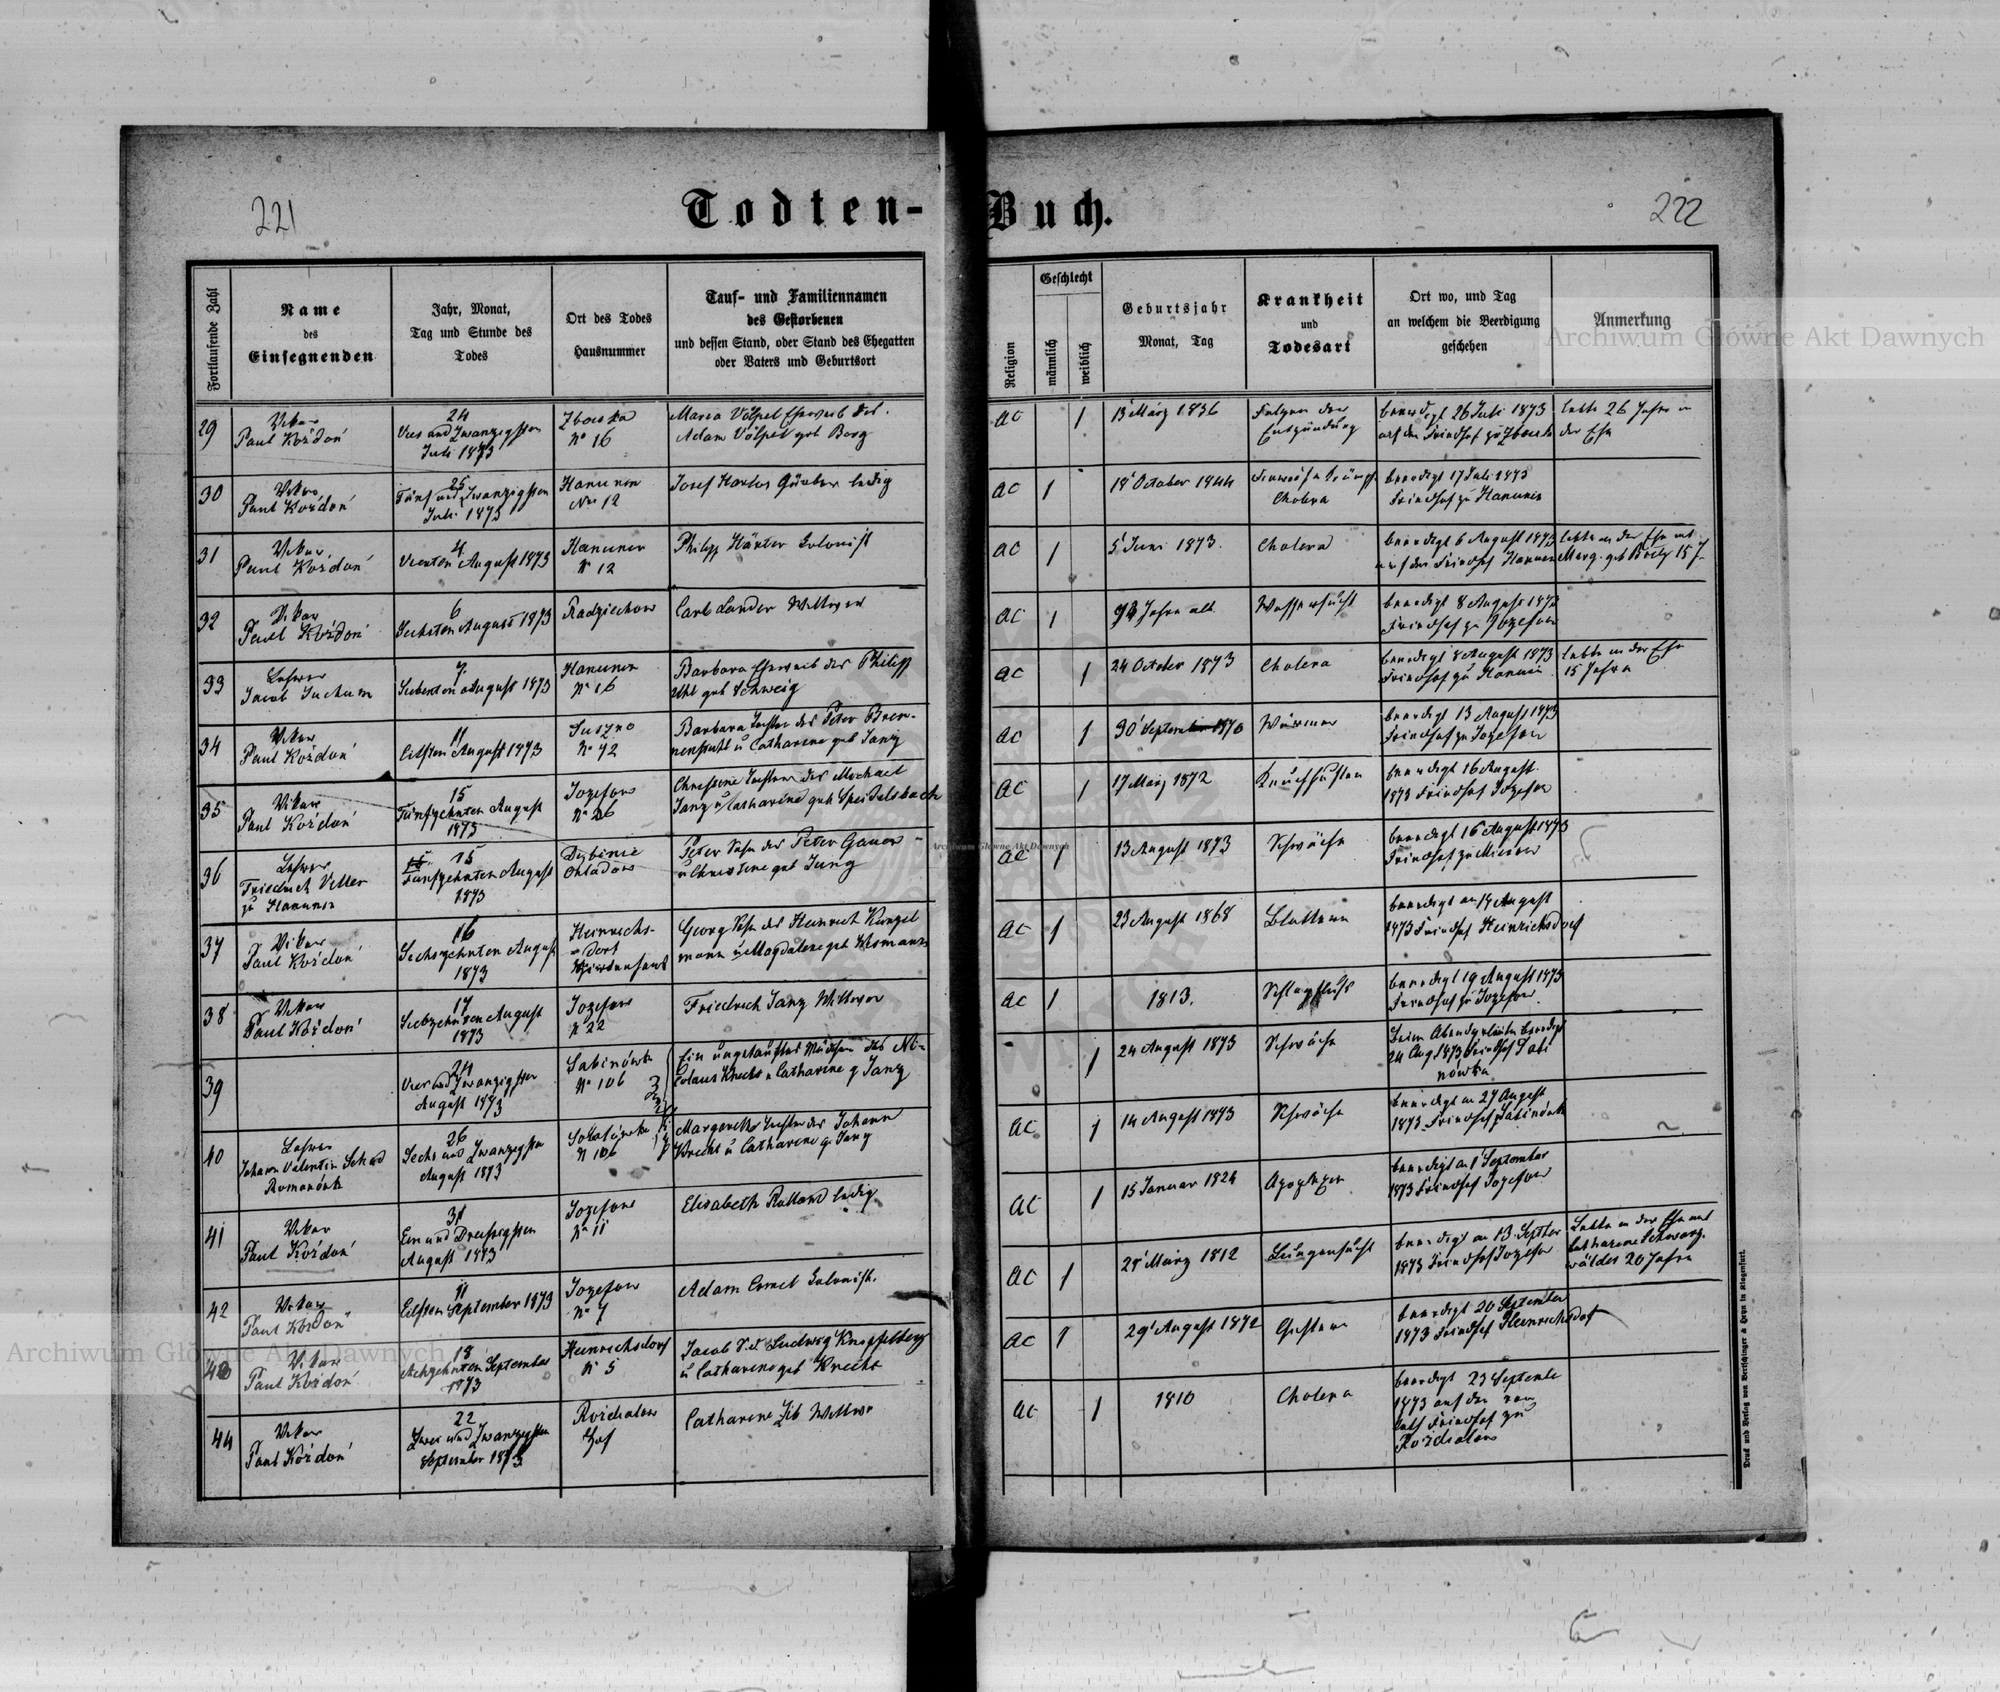 221
Todten-Buch.
222
Fortlaufende Zahl
Name
des
Einsegnenden
Jahr, Monat,
Tag und Stunde des
Todes
Ort des Todes
Hausnummer
Tauf- und Familiennamen
des Gestorbenen
und dessen Stand, oder Stand des Ehegatten
oder Vaters und Geburtsort
Religion
Geschlecht
männlich
weiblich
Geburtsjahr
Monat, Tag
Krankheit
und
Todesart
Ort wo, und Tag
an welchem die Beerdigung
geschehen
Anmerkung
29
Vikar
Paul Kożdoń
24
Vier und Zwanzigsten
Juli 1873
Zboiska
N° 16
Maria Völpel Eheweib des
Adam Völpel geb Borg
AC
1
13 März 1836
Folgen der
Entzündung
beerdigt 26 Juli 1873
auf dem Friedhof zu
lebte 26 Jahre in
der Ehe
30
Vikar
Paul Kożdoń
25
Fünf und Zwanzigsten
Juli 1873
Hanunin
No 12
Josef Karlos ledig
AC
1
18 October 1844
Cholera
beerdigt 17 Juli 1873
Friedhof zu Hanunin
31
Vikar
Paul Kożdoń
4
Vierten August 1873
Hanunin
N° 12
Philipp Härter Colonist
AC
1
5 Juni 1873.
Cholera
beerdigt 6 August 1873
auf dem Friedhof Hanunin
lebte in der Ehe mit
Marg. geb 15 J
32
Vikar
Paul Kożdoń
6
Sechsten August 1873
Radziechow
Carl Lander Wittwer
AC
1
Jahre alt
Wassersucht
beerdigt 8 August 1873
Friedhof zu Jozefow
33
Lehrer
Jacob
7
Siebenten August 1873
Hanunin
N° 16
Barbara Eheweib des Philipp
Uhl geb Schweig
AC
1
24 October 1873
Cholera
beerdigt 8 August 1873
Friedhof zu Hanunin
lebte in der Ehe
15 Jahre
34
Vikar
Paul Kożdoń
11
Eilften August 1873
Suszno
N° 42
Barbara Tochter des Peter Bren-
nenstuhl u Catharine geb Janz
AC
1
30 September 1870
Würmer
beerdigt 13 August 1873
Friedhof zu Jozefow
35
Vikar
Paul Kożdoń
15
Fünfzehnten August
1873
Jozefow
N° 26
Christine Tochter des Michael
Janz u Catharine geb Speidelsbach
AC
1
17 März 1872
Keuchhusten
beerdigt 16 August
1873 Friedhof Jozefow
36
Lehrer
Friedrich Vetter
zu Hanunin
15
Fünfzehnten August
1873
Dybinie
Chladow
Peter Sohn des Peter Gauer
u Christine geb Jung
AC
1
13 August 1873
Schwäche
beerdigt 16 August 1873
Friedhof zu Mierow
37
Vikar
Paul Kożdoń
16
Sechszehnten August
1873
Heinrichs-
dorf
Georg Sohn des Heinrich Künzel
mann u Magdalene geb
AC
1
23 August 1868
Blattern
beerdigt am 17 August
1873 Friedhof Heinrichsdorf
38
Vikar
Paul Kożdoń
17
Siebzehnten August
1873
Jozefow
N° 22
Friedrich Janz Wittwer
AC
1
1813.
Schlagfluß
beerdigt 19 August 1873
Friedhof zu Jozefow
39
24
Vier und Zwanzigsten
August 1873
Sabinówka
N° 106
Ein ungetauftes Mädchen des Ni-
colaus Knecht u Catharine g Janz
1
24 August 1873
Schwäche
Beim Abendgeläute beerdigt
24 Aug 1873 Friedhof Sabi
nówka
40
Lehrer
Johann Valentin
Romanówka
26
Sechs und Zwanzigsten
August 1873
N 106
Zwillinge
Margarethe Tochter des Johann
Knecht u Catharine g. Janz
AC
1
14 August 1873
Schwäche
beerdigt am 27 August
1873 Friedhof Sabinówka
41
Vikar
Paul Kożdoń
31
Ein und Dreißigsten
August 1873
Jozefow
N° 11
Elisabeth ledig
AC
1
15 Januar 1824
Apoplexie
beerdigt am 1 September
1873 Friedhof Jozefow
42
Vikar
Paul Kożdoń
11
Eilften September 1873
Jozefow
N° 7
Adam Cornel Colonist.
AC
1
25 März 1812
Lungensucht
beerdigt am 13 Septber
1873 Friedhof Jozefow
Lebte in der Ehe mit
Catharine Schwarz-
wälder 20 Jahre
43
Vikar
Paul Kożdoń
18
Achzehnten September
1873
Heinrichsdorf
N° 5
Jacob S. d. Ludwig
u Catharine geb Knecht
AC
1
29 August 1872
Husten
beerdigt 20 September
1873 Friedhof Heinrichsdorf
44
Vikar
Paul Kożdoń
22
Zwei und Zwanzigsten
September 1873
Rozdialow
Hof
Catharine Wittwe
AC
1
1810
Cholera
beerdigt 23 September
1873 auf dem
Friedhof zu
Rozdialow
Druck und Verlag von Bertschinger & Heyn in Klagenfurt.
Archiwum Główne Akt Dawnych
Archiwum Główne Akt Dawnych
Archiwum Główne Akt Dawnych